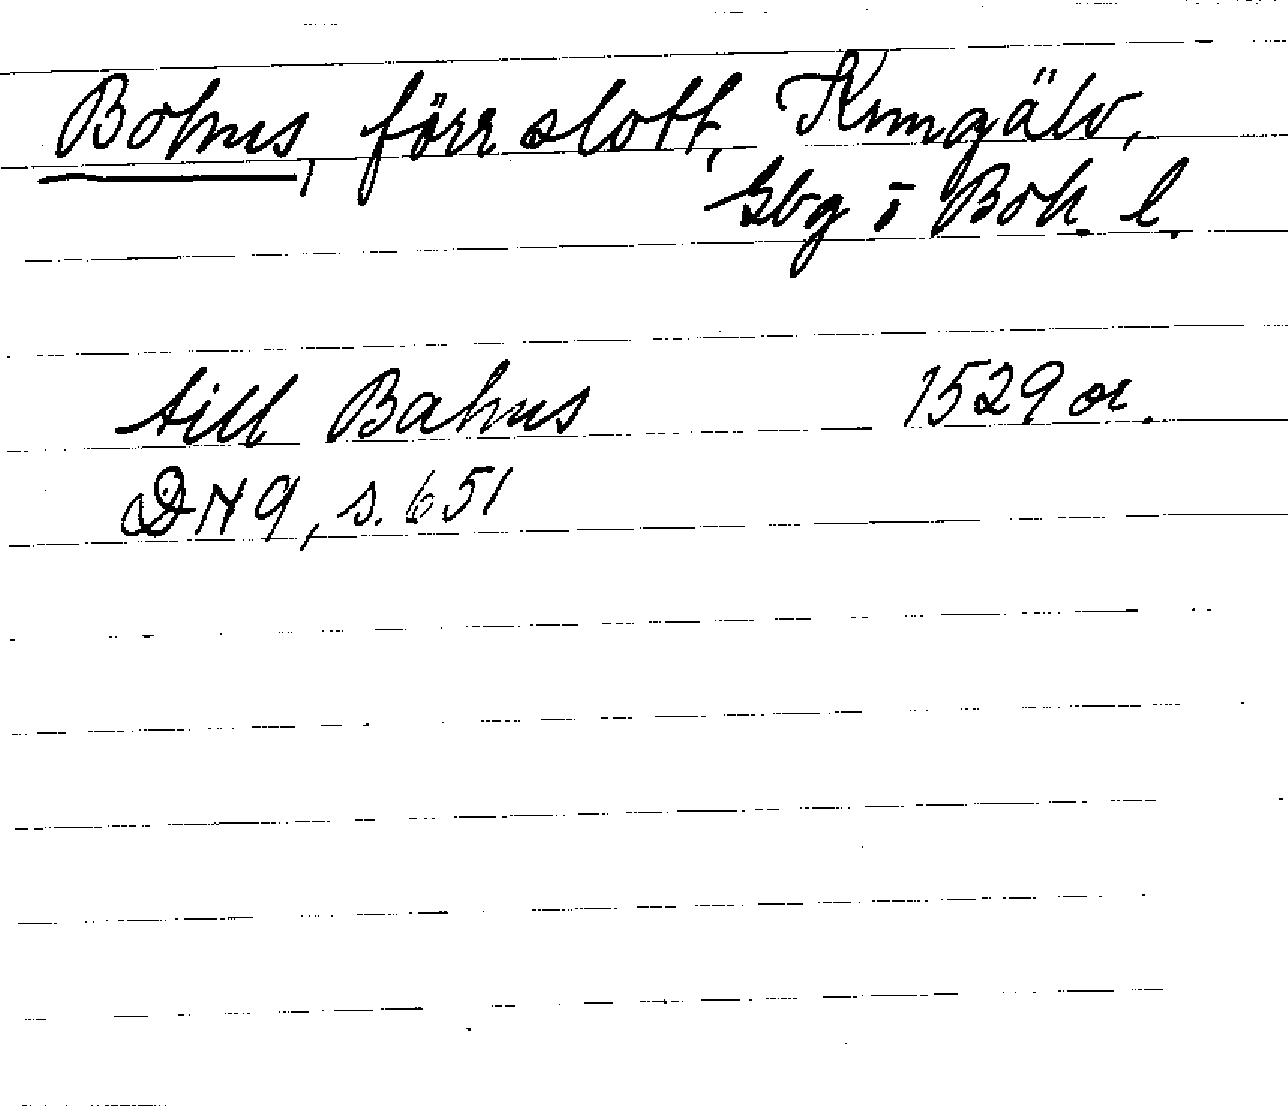 Bohus, förr slott, Kungälv,
Gbg o Boh. l.
till Bahus 1529 or.
DN 9, s. 651